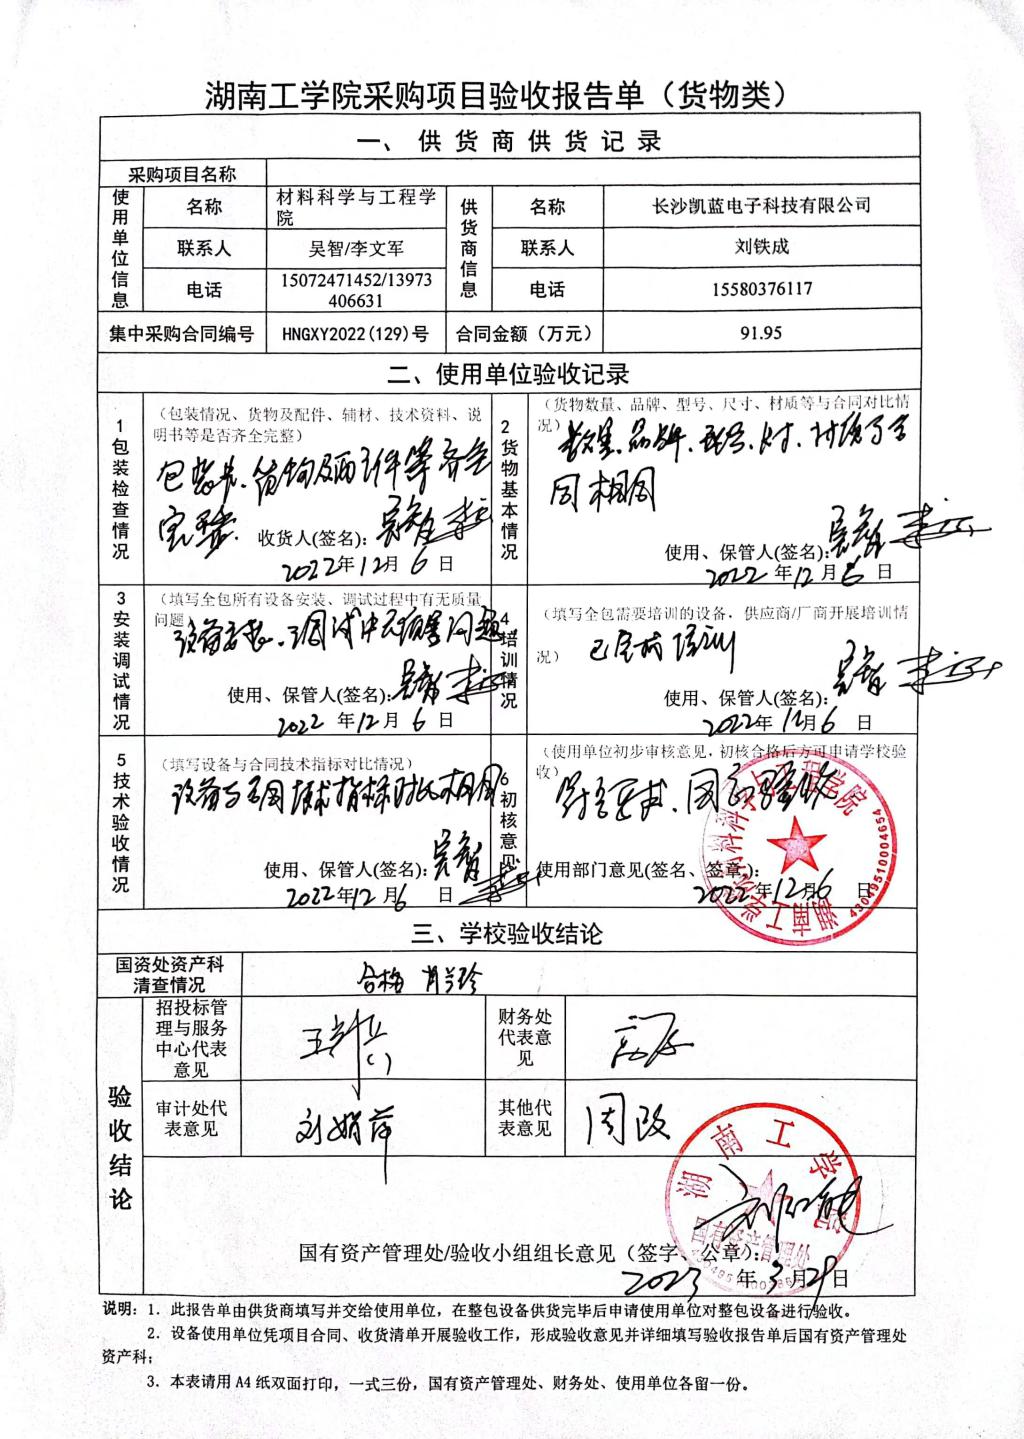 湖南工学院采购项目验收报告单（货物类）
一、供货商供货记录
采购项目名称
使用单位信息
名称
材料科学与工程学院
供货商信息
名称
长沙凯蓝电子科技有限公司
联系人
吴智/李文军
联系人
刘铁成
电话
15072471452/13973406631
电话
15580376117
集中采购合同编号
HNGXY2022(129)号
合同金额（万元）
91.95
二、使用单位验收记录
1包装检查情况
（包装情况、货物及配件、辅材、技术资料、说
明书等是否齐全完整）
包装、货物及配件等齐全
完整.
收货人(签名):
2022年12月6日
2货物基本情况
（货物数量、品牌、型号、尺寸、材质等与合同对比情
况）
数量、品牌、型号、尺寸、材质与合
同相同
使用、保管人(签名):
2022年12月6日
3安装调试情况
（填写全包所有设备安装、调试过程中有无质量
问题）
设备安装、调试中无质量问题
使用、保管人(签名):
2022年12月6日
4培训情况
（填写全包需要培训的设备，供应商/厂商开展培训情
况）
已完成培训
使用、保管人(签名):
2022年12月6日
5技术验收情况
（填写设备与合同技术指标对比情况）
设备与合同技术指标对比相同
使用、保管人(签名):
2022年12月6日
6初核意见
（使用单位初步审核意见，初核合格后方可申请学校验
收）
符合要求、同意验收
使用部门意见(签名、签章):
2022年12月6日
湖南工学院材料科学与工程学院
43049510004654
三、学校验收结论
国资处资产科清查情况
合格 肖兰珍
验收结论
招投标管理与服务中心代表意见
财务处代表意见
审计处代表意见
刘娟萍
其他代表意见
周政
湖南工学院
国有资产管理处
国有资产管理处/验收小组组长意见（签字、公章）:
2023年3月29日
说明：1．此报告单由供货商填写并交给使用单位，在整包设备供货完毕后申请使用单位对整包设备进行验收。
2．设备使用单位凭项目合同、收货清单开展验收工作，形成验收意见并详细填写验收报告单后国有资产管理处
资产科；
3．本表请用A4纸双面打印，一式三份，国有资产管理处、财务处、使用单位各留一份。